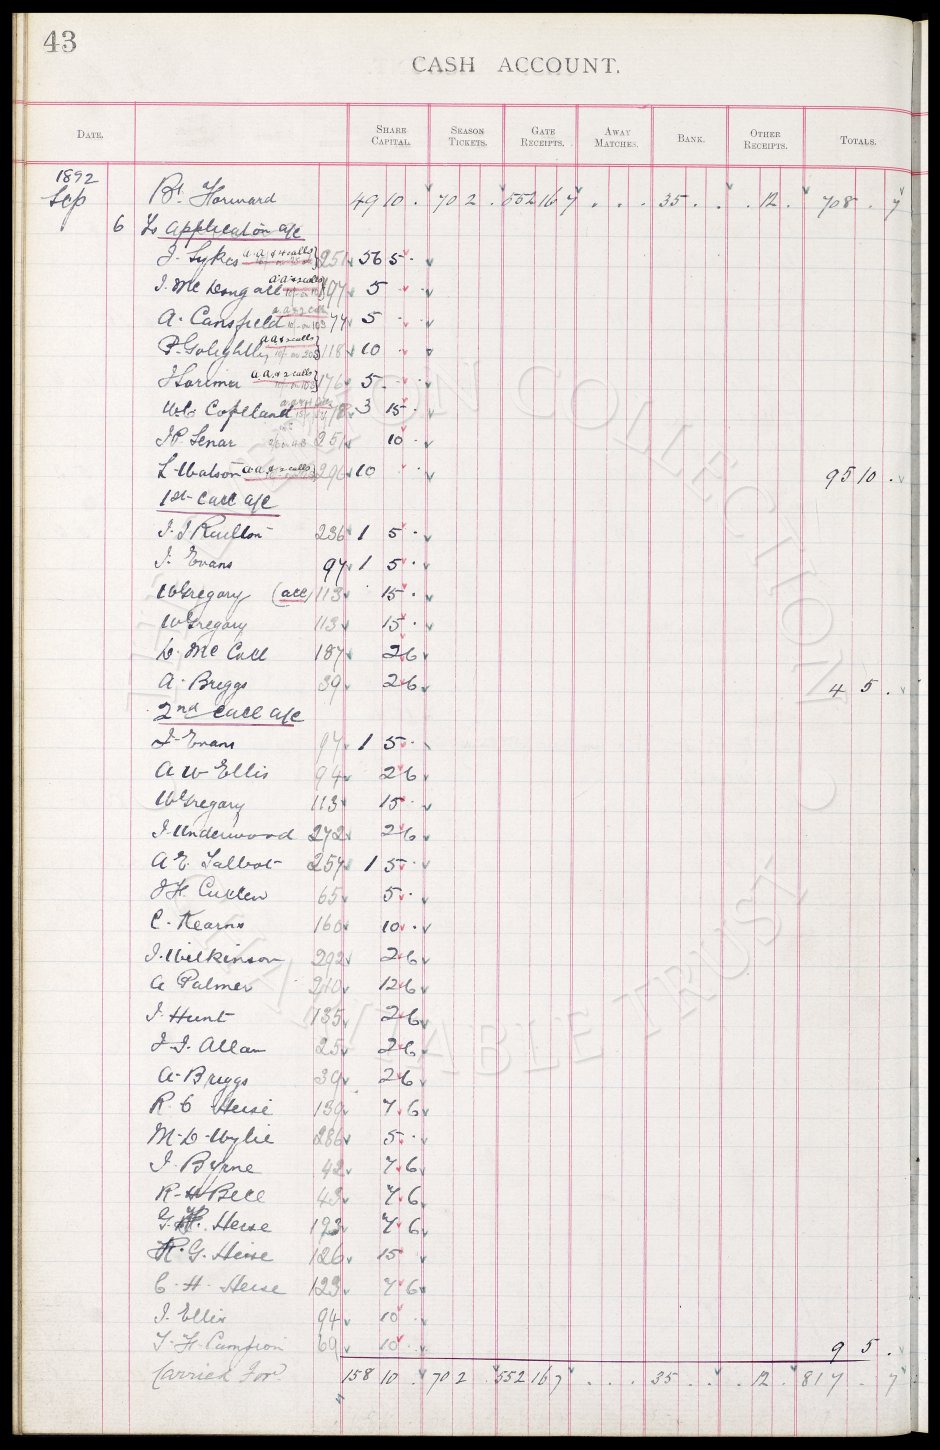 43
CASH ACCOUNT.
DATE. SHARE CAPITAL. SEASON TICKETS. GATE RECEIPTS. AWAY MATCHES. BANK. OTHER RECEIPTS. TOTALS.
1892
Sep Bt. Forward 49 10 . 702 . 552 16 7 . . . 35 . . . 12 . 708 . 7
6 To Application a/c
J. Sykes a.a. & 4 calls 251 56 5 .
J. McDougall a.a. & 2 calls 197 5 . .
A. Cansfield a.a. & 2 calls 10/- on 103 74 5 . .
P. Golightly a.a. & 2 calls 10/- on 203 118 10 . .
J Lorimer a.a. & 2 calls 10/- on 103 176 5 . .
W.C. Copeland 78 3 15 .
J.P. Senar 251 10 .
L Watson a.a. & 2 calls 296 10 . . 95 10 .
1st Call a/c
J. J Roullon 236 1 5 .
J. Evans 97 1 5 .
W Gregory (all) 113 15 .
W Gregory 113 15 .
D. McCall 187 2 6
A. Briggs 39 2 6 4 5 .
2nd Call a/c
J. Evans 97 1 5 .
A W Ellis 94 2 6
W Gregory 113 15 .
J. Underwood 272 2 6
A E. Talbot 257 1 5 .
J H. Cullen 65 5 .
C. Kearns 160 10 .
J. Wilkinson 292 2 6
A Palmer 210 12 6
J. Hunt 135 2 6
J. J. Allan 25 2 6
A. Briggs 39 2 6
R. C Heise 130 7 6
M. D. Wylie 286 5 .
J. Byrne 42 7 6
R. H Bell 43 7 6
G. H. Heise 192 7 6
R. G. Heise 126 15
C. H. Heise 123 7 6
J. Ellis 94 10 .
T. H. Campion 69 10 . 9 5 .
Carried For'd 158 10 . 702 . 552 16 7 . . . 35 . . . 12 . 817 . 7
COLLECTION
CHARITABLE TRUST